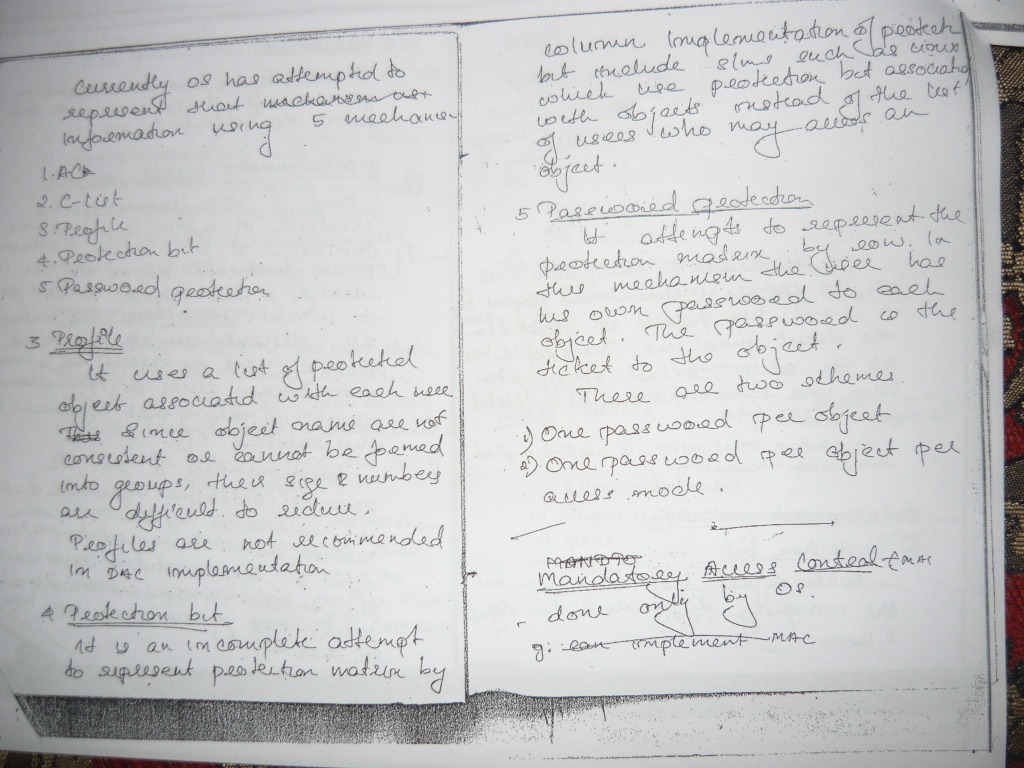 Currently OS has attempted to
represent that
information using 5 mechanism
1. ACL
2. C-List
3. Profile
4. Protection bit
5. Password protection
3 Profile
It uses a list of protected
object associated with each user
Since object name are not
consistent or cannot be formed
into groups, their size & numbers
are difficult to reduce.
Profiles are not recommended
in DAC implementation
4 Protection bit
It is an incomplete attempt
to represent protection matrix by
column Implementation of protect
bit include s/ms such as unix
which use protection bit associated
with objects instead of the list
of users who may access an
object.
5 Password protection
It attempts to represent the
protection matrix by row. In
this mechanism the user has
his own password to each
object. The password is the
ticket to the object.
There are two schemes
1) One password per object
2) One password per object per
access mode.
Mandatory Access Control (MAC
- done only by OS.
implement MAC